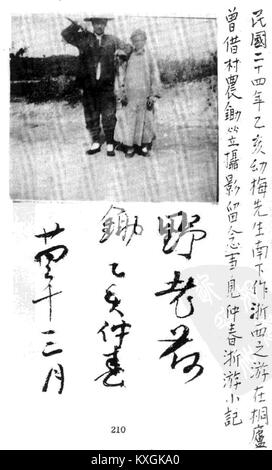 民國二十四年乙亥幼梅先生南下作浙西之游在桐廬
曾借村農鋤竚立攝影留念事見仲春浙游小記
野老荷
鋤
乙亥仲春
廿四年三月
210